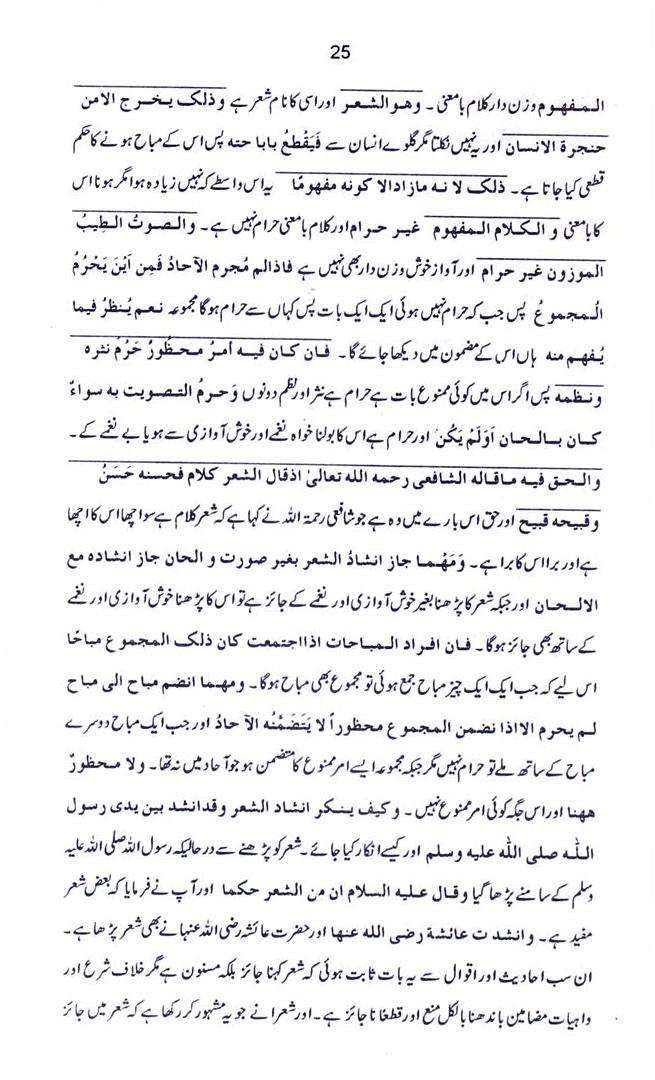 25
المفهوم وزن دار کلام با معنی ۔ وهو الشعر اور اسی کا نام شعر ہے وذلک یخرج الامن
حنجرة الانسان اور یہ نہیں نکلتا مگر گلوے انسان سے فَیَقْطَعُ بابا حته پس اس کے مباح ہونے کا حکم
قطعی کیا جاتا ہے۔ ذلک لا نه مازادالا کونه مفهومًا یہ اس واسطے کہ نہیں زیادہ ہوا مگر ہونا اس
کا با معنی و الکلام المفهوم غیر حرام اور کلام با معنی حرام نہیں ہے۔ والصوتُ الطیبُ
الموزون غیر حرام اور آواز خوش وزن دار بھی نہیں ہے فاذالم مُجرم الآحادُ فَمِن اَیْنَ یَحْرُمُ
الُمجموعُ پس جب کہ حرام نہیں ہوئی ایک ایک بات پس کہاں سے حرام ہوگا مجموعہ نعم یُنظرُ فیما
یُفهم منه ہاں اس کے مضمون میں دیکھا جائے گا۔ فان کان فیه اَمرُ محظورُ حَرُمُ نثره
ونظمه پس اگر اس میں کوئی ممنوع بات ہے حرام ہے نثر اور نظم دونوں وَحرمُ التصویت به سواءٌ
کان بالحان اَوْلَمْ یَکُنْ اور حرام ہے اس کا بولنا خواہ نغمے اور خوش آوازی سے ہو یا بے نغمے کے۔
والحق فیه ماقاله الشافعی رحمه الله تعالیٰ اذقال الشعر کلام فحسنه حَسَنُ
وقبیحه قبیح اور حق اس بارے میں وہ ہے جو شافعی رحمۃ اللہ نے کہا ہے کہ شعر کلام ہے سو اچھا اس کا اچھا
ہے اور برا اس کا برا ہے۔ وَمَهْما جاز انشادُ الشعر بغیر صورت و الحان جاز انشاده مع
الالحان اور جبکہ شعر کا پڑھنا بغیر خوش آوازی اور نغمے کے جائز ہے تو اس کا پڑھنا خوش آوازی اور نغمے
کے ساتھ بھی جائز ہوگا۔ فان افراد المباحات اذااجتمعت کان ذلک المجموع مباحًا
اس لیے کہ جب ایک ایک چیز مباح جمع ہوئی تو مجموع بھی مباح ہوگا۔ ومهما انضم مباح الی مباح
لم یحرم الااذا نضمن المجموع محظوراً لا یَتَضَمَّنُه الآحاد اور جب ایک مباح دوسرے
مباح کے ساتھ ملے تو حرام نہیں مگر جبکہ مجموعہ ایسے امر ممنوع کا متضمن ہو جو آحاد میں نہ تھا۔ ولا محظورٌ
ههنا اور اس جگہ کوئی امر ممنوع نہیں۔ وکیف ینکر انشاد الشعر وقدانشد بین یدی رسول
اللّٰه صلی اللّٰه علیه وسلم اور کیسے انکار کیا جائے۔ شعر کو پڑھنے سے در حالیکہ رسول اللہ صلی اللہ علیہ
وسلم کے سامنے پڑھا گیا وقال علیه السلام ان من الشعر حکما اور آپ نے فرمایا کہ بعض شعر
مفید ہے۔ وانشدت عائشة رضی الله عنها اور حضرت عائشہ رضی اللہ عنہا نے بھی شعر پڑھا ہے۔
ان سب احادیث اور اقوال سے یہ بات ثابت ہوئی کہ شعر کہنا جائز بلکہ مسنون ہے مگر خلاف شرع اور
واہیات مضامین باندھنا بالکل منع اور قطعًا نا جائز ہے۔ اور شعرا نے جو یہ مشہور کر رکھا ہے کہ شعر میں جائز